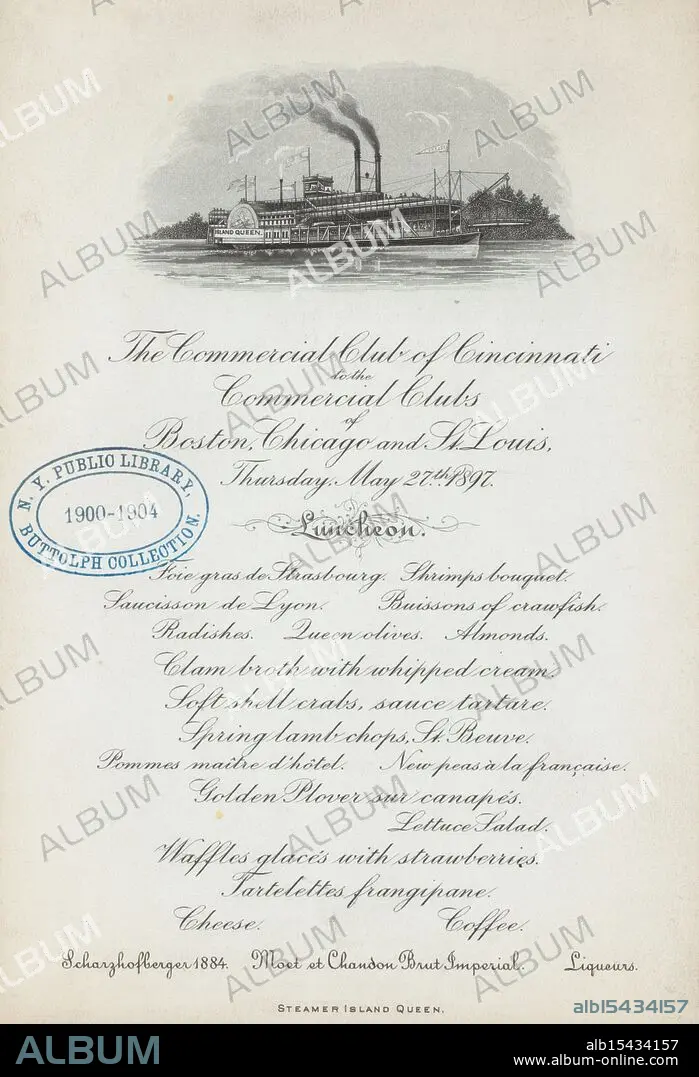 ISLAND QUEEN.
The Commercial Club of Cincinnati
to the
Commercial Clubs
of
Boston, Chicago and St. Louis,
Thursday, May 27th. 1897.
N. Y. PUBLIC LIBRARY,
1900-1904
BUTTOLPH COLLECTION.
Luncheon.
Foie gras de Strasbourg. Shrimps bouquet.
Saucisson de Lyon. Buissons of crawfish.
Radishes. Queen olives. Almonds.
Clam broth with whipped cream.
Soft shell crabs, sauce tartare.
Spring lamb chops, St. Beuve.
Pommes maître d'hôtel. New peas à la française.
Golden Plover sur canapés.
Lettuce Salad.
Waffles glacés with strawberries.
Tartelettes frangipane.
Cheese. Coffee.
Scharzhofberger 1884. Moet et Chandon Brut Imperial. Liqueurs.
STEAMER ISLAND QUEEN.
alb15434157
ALBUM
alb15434157
www.album-online.com